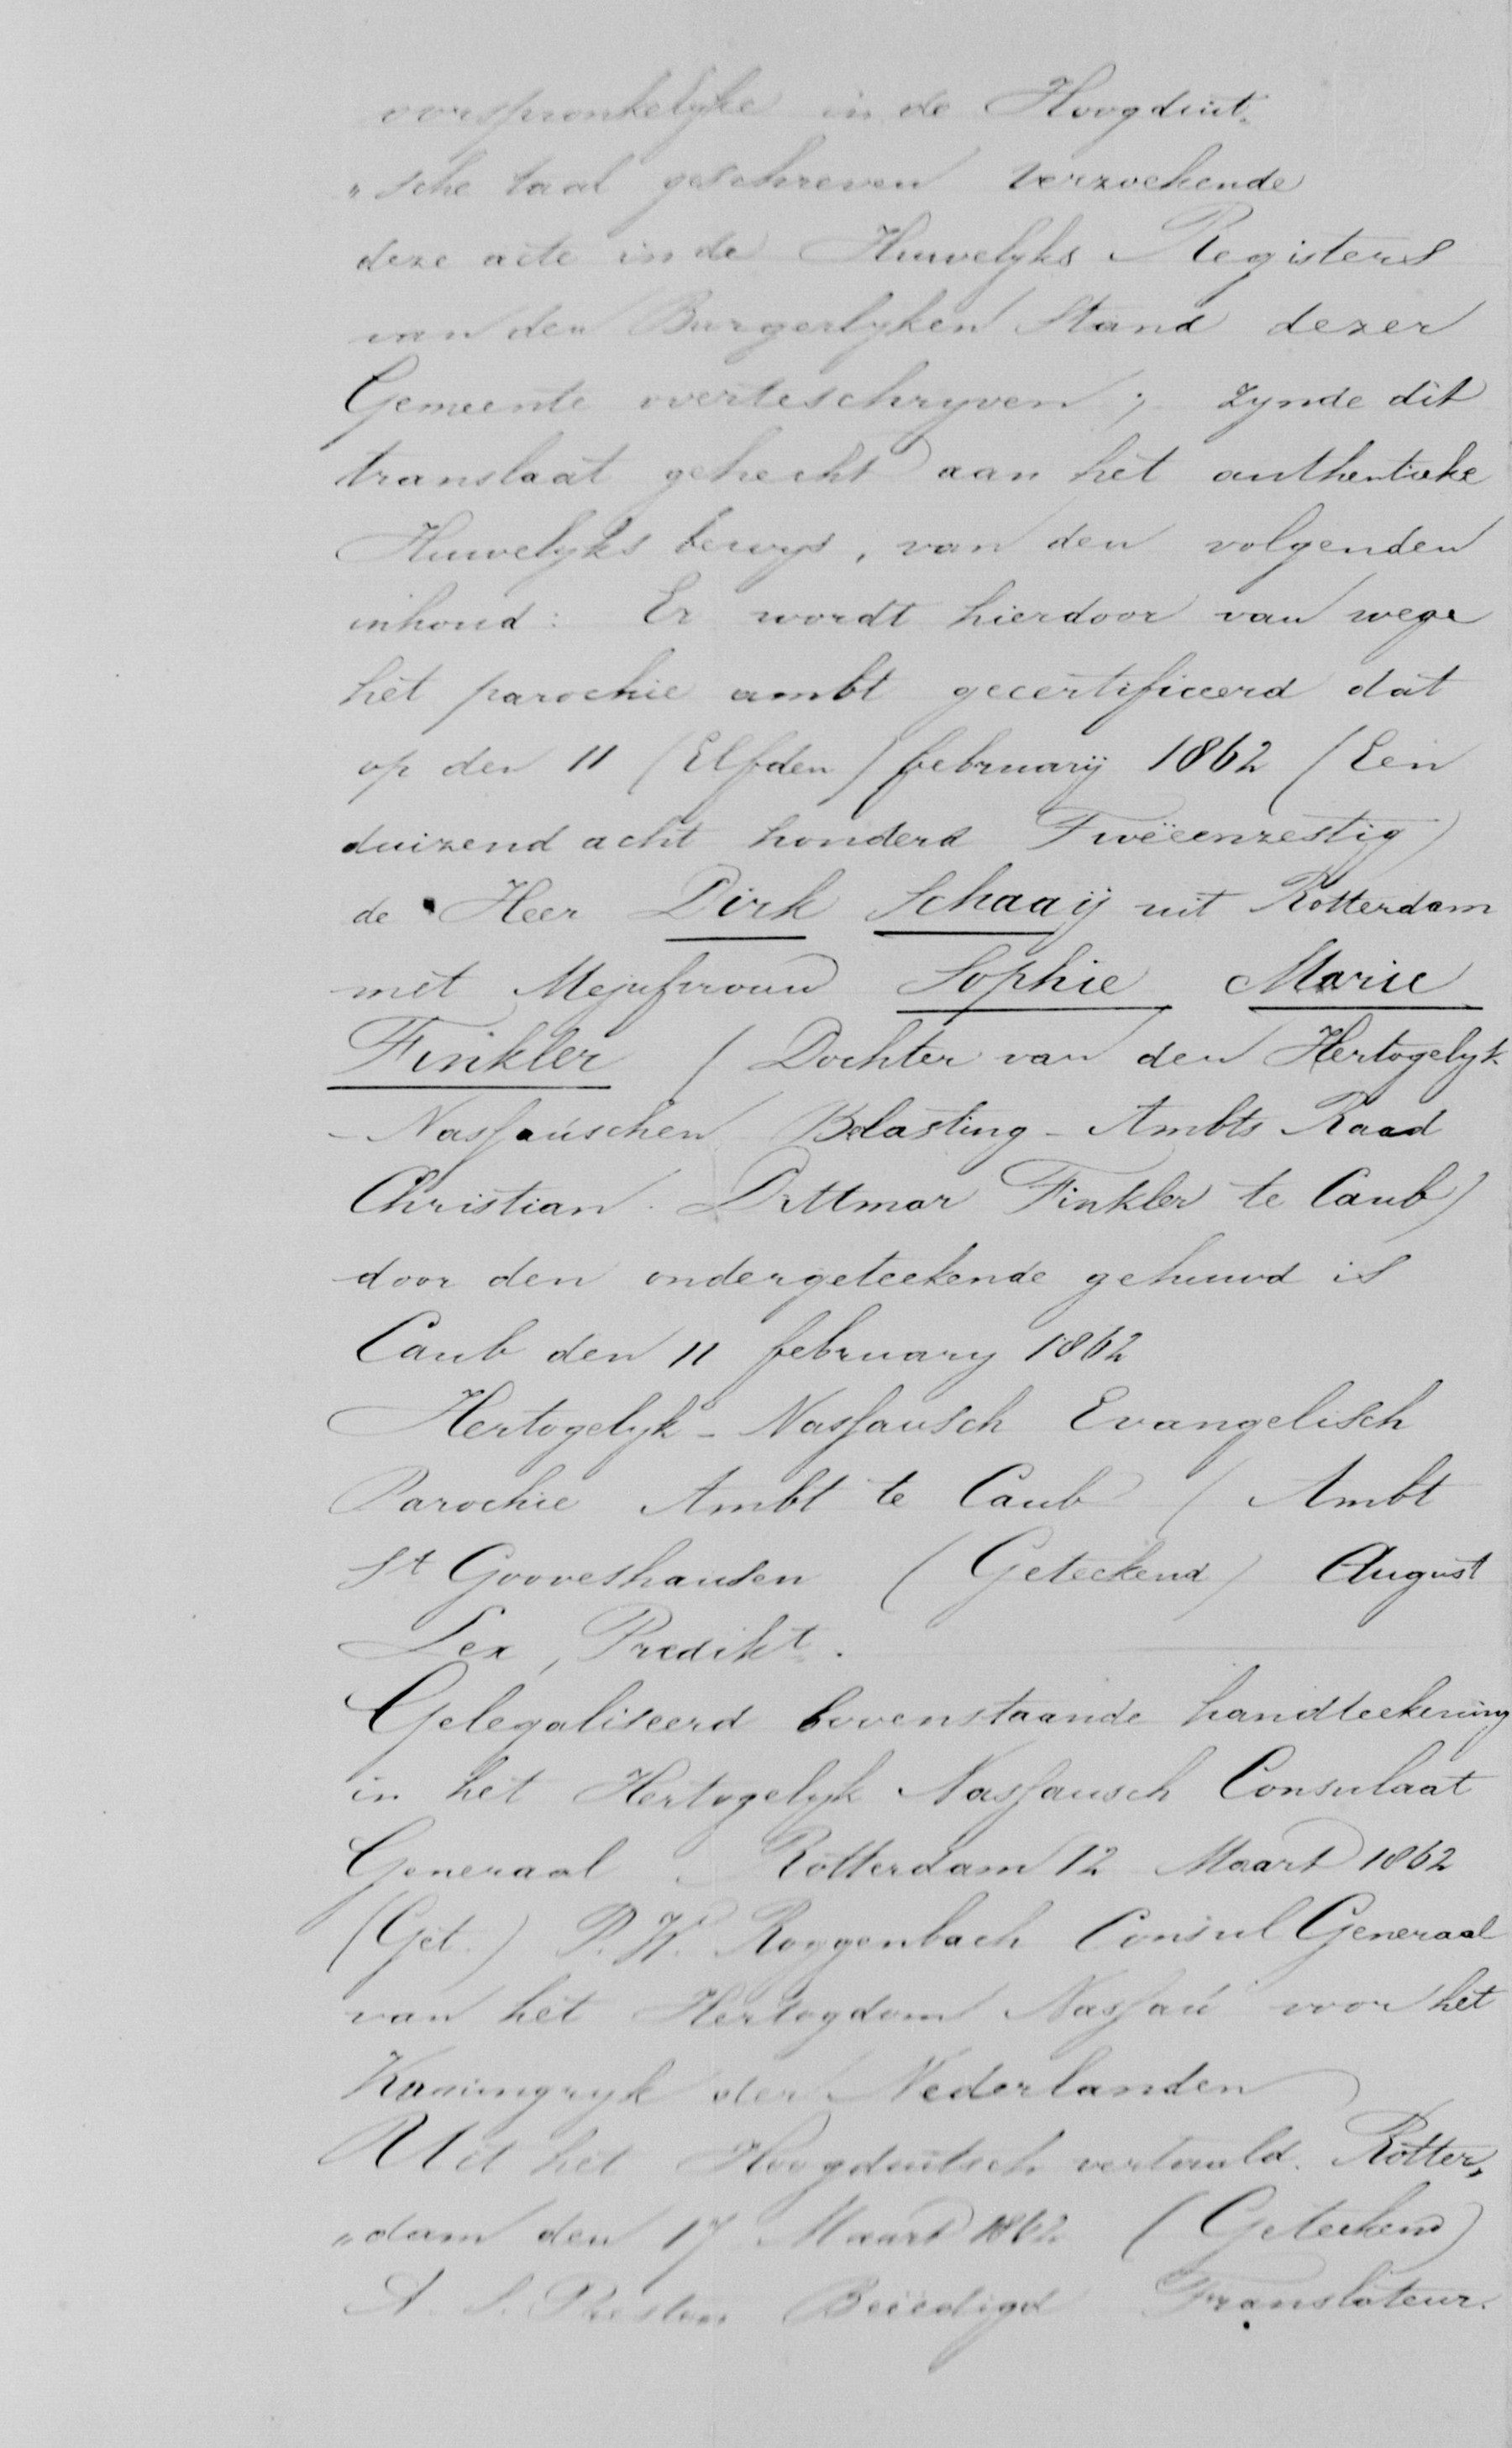 oorspronkelyke in de Hoogduit„
„sche taal geschreven verzoekende
deze acte in de Huwelyks Registers
van den Burgerlyken Stand dezer
Gemeente overteschryven ; zynde dit
translaat gehecht aan het authentieke
Huwelyks bewys , van den volgenden
inhoud : Er wordt hierdoor van wege
het parochie ambt gecertificeerd dat
op den 11 (Elfden) february 1862 (Een
duizend acht honderd Tweëenzestig)
de Heer Dirk Schaaij uit Rotterdam
met Mejufvrouw Sophie Marie
Finkler ( Dochter van den Hertogelyk
- Nassauschen Belasting - Ambts Raad
Christian Dittmar Finkler te Caub)
door den ondergeteekende gehuwd is
Caub den 11 february 1862
Hertogelyk - Nassausch Evangelisch
Parochie Ambt te Caub ( Ambt
St Gooveshausen (Geteekend) August
Lex, Predikt.
Gelegaliseerd bovenstaande handteekening
in het Hertogelyk Nassausch Consulaat
Generaal Rotterdam 12 Maart 1862
(Get.) P. W. Roggenbach Consul Generaal
van het Hertogdom Nassau voor het
Koningryk der Nederlanden
Uit het Hoogduitsch vertaald. Rotter„
„dam den 17 Maart 1862 (Geteekend)
A. S. Preston Beëedigd Translateur.